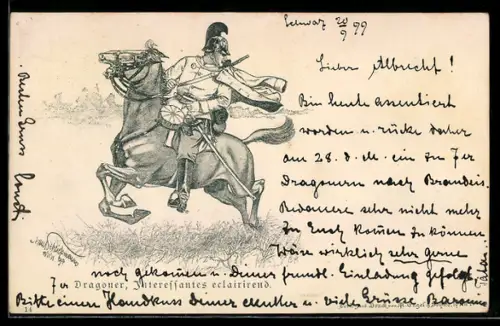 Schwaz 20/9 99
Lieber Albrecht!
Bin heute assentiert
worden u. rücke daher
am 28. d. M. ein zu 7er
Dragonern nach Brandeis.
Bedauere sehr nicht mehr
zu Euch kommen zu können
Wäre wirklich sehr gerne
noch gekommen u. Deiner freundl. Einladung gefolgt.
7er Dragoner, Interessantes eclairirend.
Bitte einen Handkuss Deiner Mutter u. viele Grüsse
Besten Gruss
14